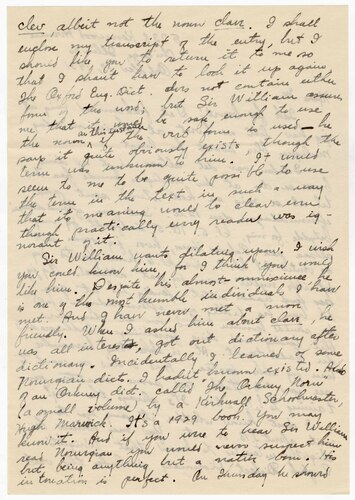 clev, albeit not the noun clave. I shall
enclose my transcript of the entry, but I
should like you to return it to me so
that I shan't have to look it up again
The Oxford Eng. Dict. does not contain either
form of the word; but Sir William assures
me that it would be safe enough to use
the noun in this instance if the verb form is used—he
says it quite obviously exists though the
term was unknown to him. It would
seem to me to be quite possible to use
the term in the text in such a way
that its meaning would be clear even
though practically every reader was ig-
norant of it.
Sir William wants dilating upon. I wish
you could know him, for I think you would
like him. Despite his almost-omniscience he
is one of the most humble individuals I have
met. And I have never met a more
friendly. When I asked him about clave he
was all interest, got out dictionary after
dictionary. Incidentally I learned of some
Norwegian dicts. I hadn't known existed. And
of an Orkney dict. called "The Orkney Norn"
(a small volume by a Kirkwall Schoolmaster,
Hugh Marwick. It's a 1929 book. You may
know it. And if you were to hear Sir William
read Norwegian you would never suspect him
but being anything but a native born. His
intonation is perfect. On Thursday he should